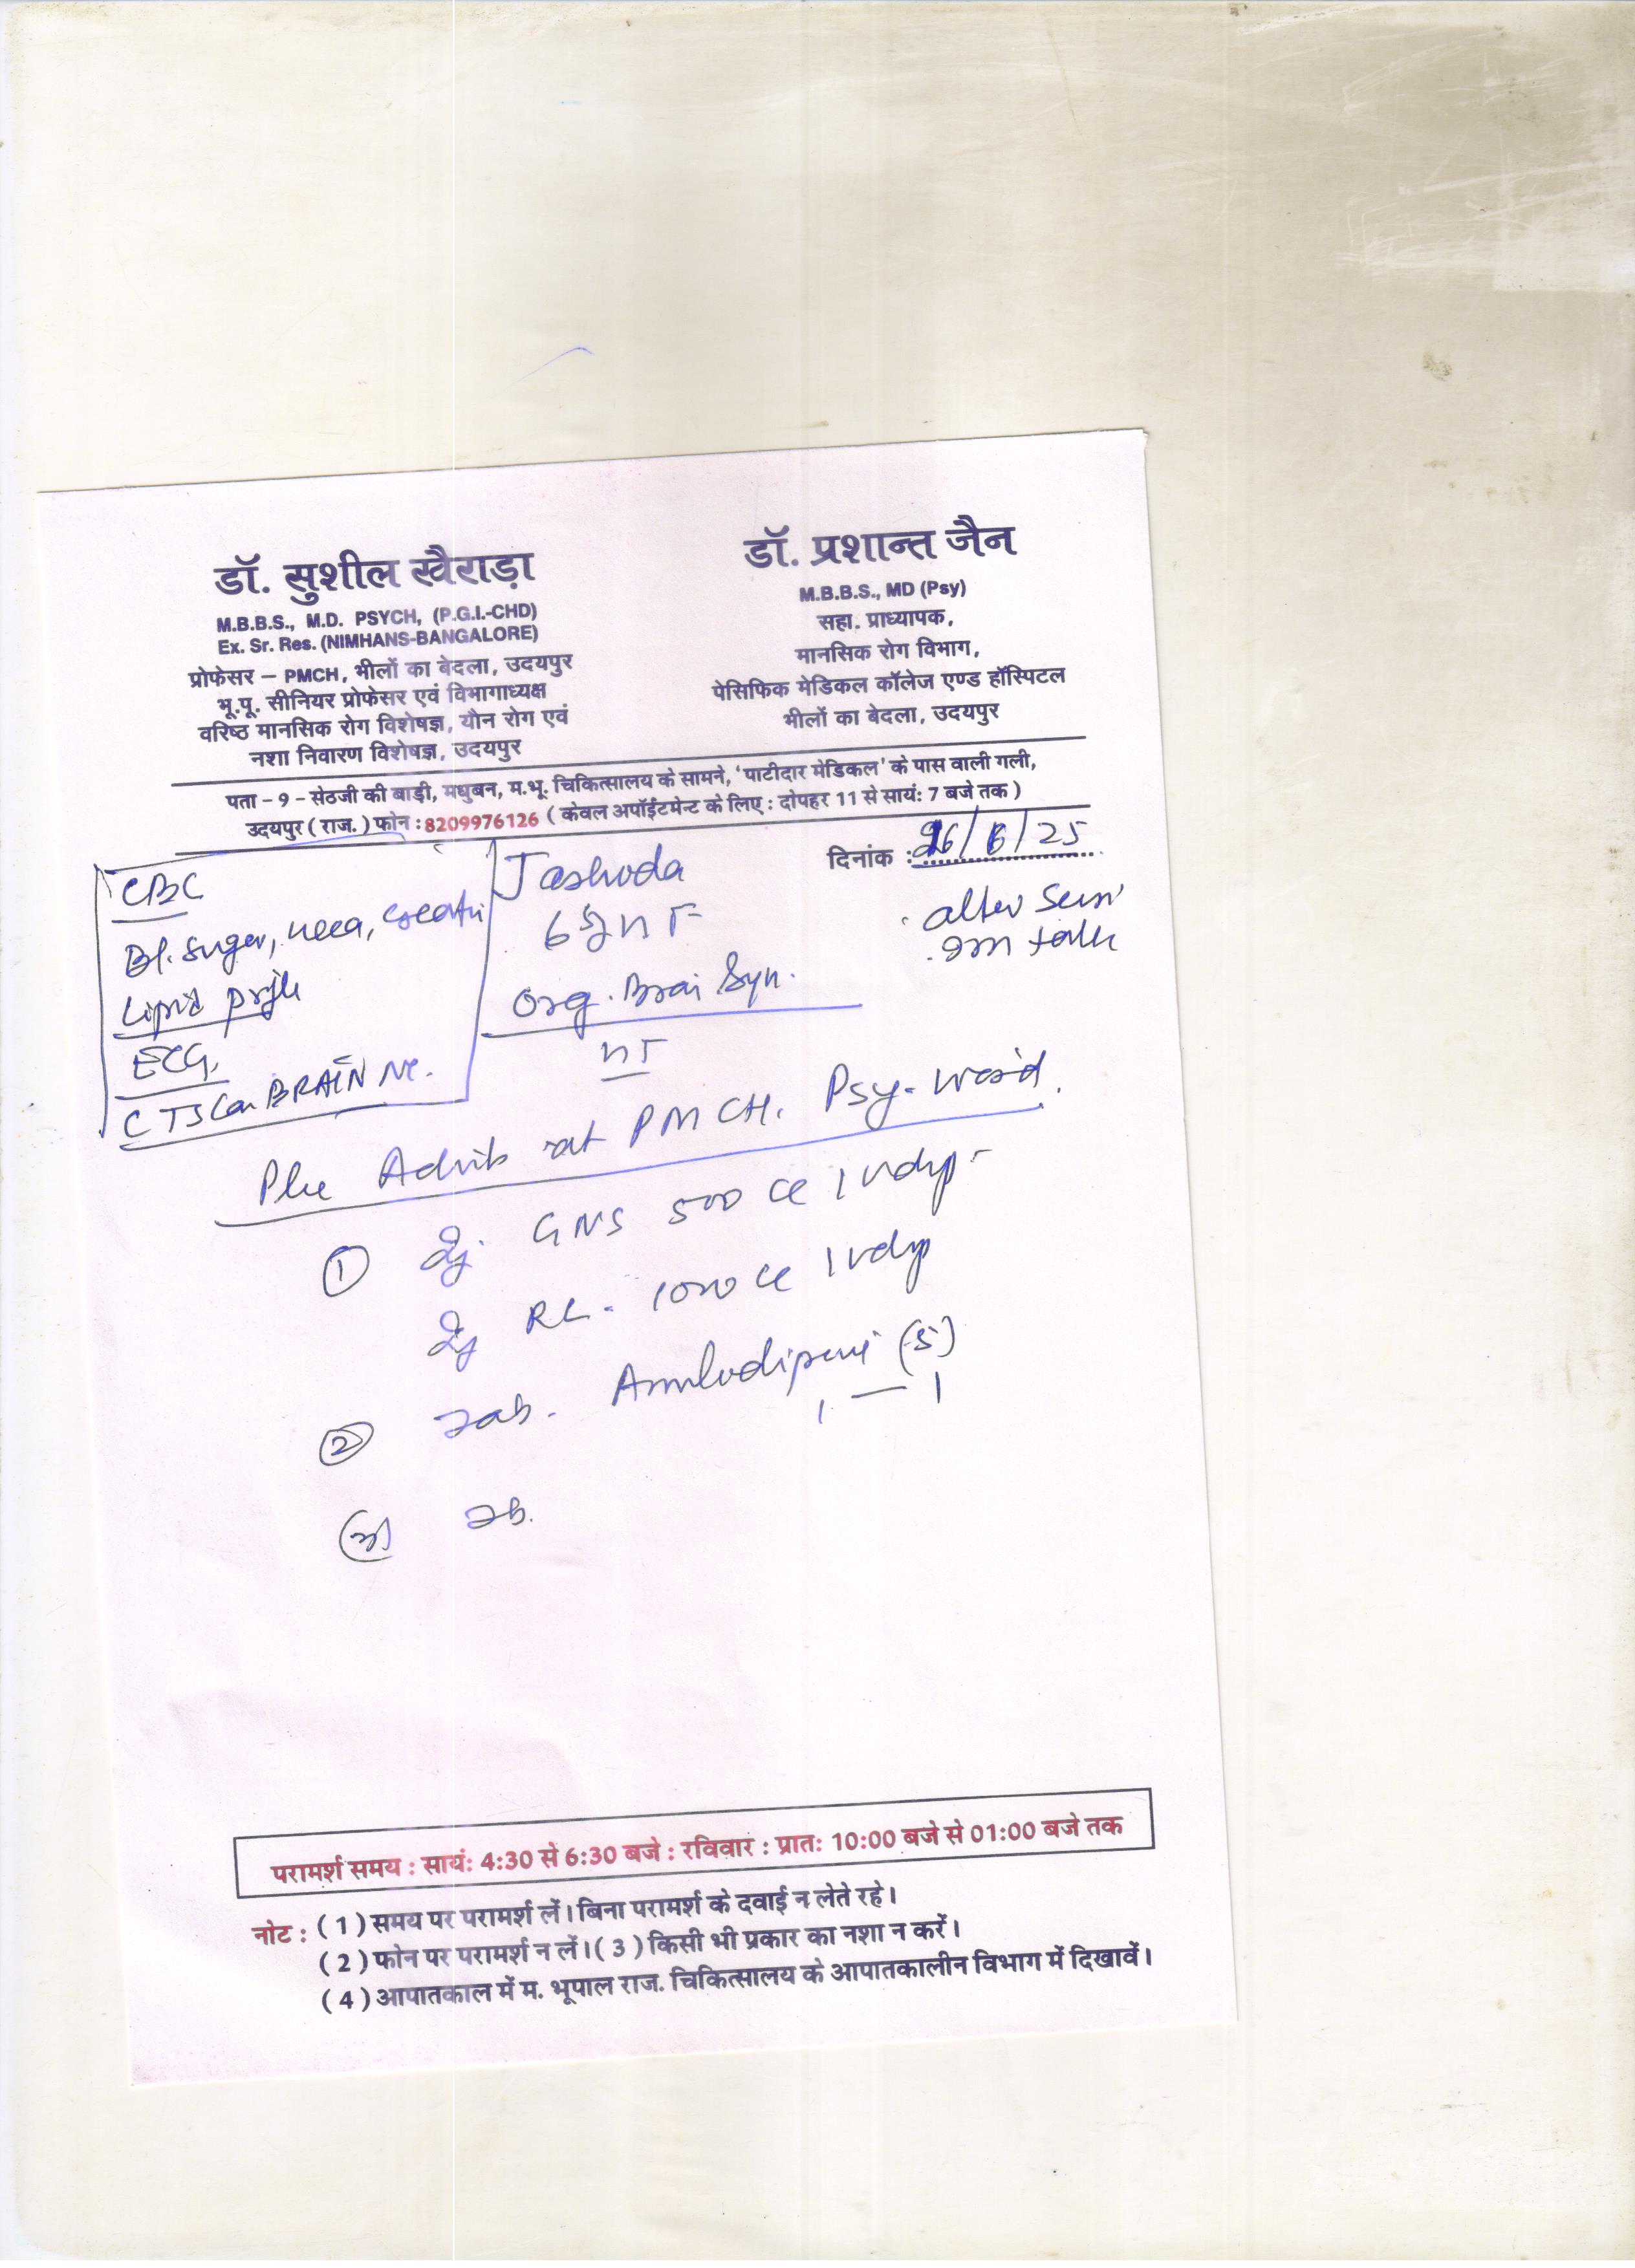 डॉ. सुशील खैराड़ा
M.B.B.S., M.D. PSYCH, (P.G.I.-CHD)
Ex. Sr. Res. (NIMHANS-BANGALORE)
प्रोफेसर – PMCH, भीलों का बेदला, उदयपुर
भू.पू. सीनियर प्रोफेसर एवं विभागाध्यक्ष
वरिष्ठ मानसिक रोग विशेषज्ञ, यौन रोग एवं
नशा निवारण विशेषज्ञ, उदयपुर
डॉ. प्रशान्त जैन
M.B.B.S., MD (Psy)
सहा. प्राध्यापक,
मानसिक रोग विभाग,
पेसिफिक मेडिकल कॉलेज एण्ड हॉस्पिटल
भीलों का बेदला, उदयपुर
पता – 9 – सेठजी की बाड़ी, मधुबन, म.भू. चिकित्सालय के सामने, 'पाटीदार मेडिकल' के पास वाली गली,
उदयपुर ( राज. ) फोन : 8209976126 ( केवल अपॉईंटमेन्ट के लिए : दोपहर 11 से सायं: 7 बजे तक )
दिनांक : 26/6/25
CBC
Bl. Sugar, urea,
Lipid profile
ECG,
CT Scan BRAIN NC.
Jashoda
65y
Org. Brai Syn.
HT
alter Sens
Adnit at PMCH. Psy. Ward.
① Inj. GNS 500 cc IV drip
Inj RL. 1000 cc IV drip
② Tab. Amlodipine (5)
1 — 1
③ Tab.
परामर्श समय : सायं: 4:30 से 6:30 बजे : रविवार : प्रात: 10:00 बजे से 01:00 बजे तक
नोट : ( 1 ) समय पर परामर्श लें। बिना परामर्श के दवाई न लेते रहे।
( 2 ) फोन पर परामर्श न लें। ( 3 ) किसी भी प्रकार का नशा न करें।
( 4 ) आपातकाल में म. भूपाल राज. चिकित्सालय के आपातकालीन विभाग में दिखावें।